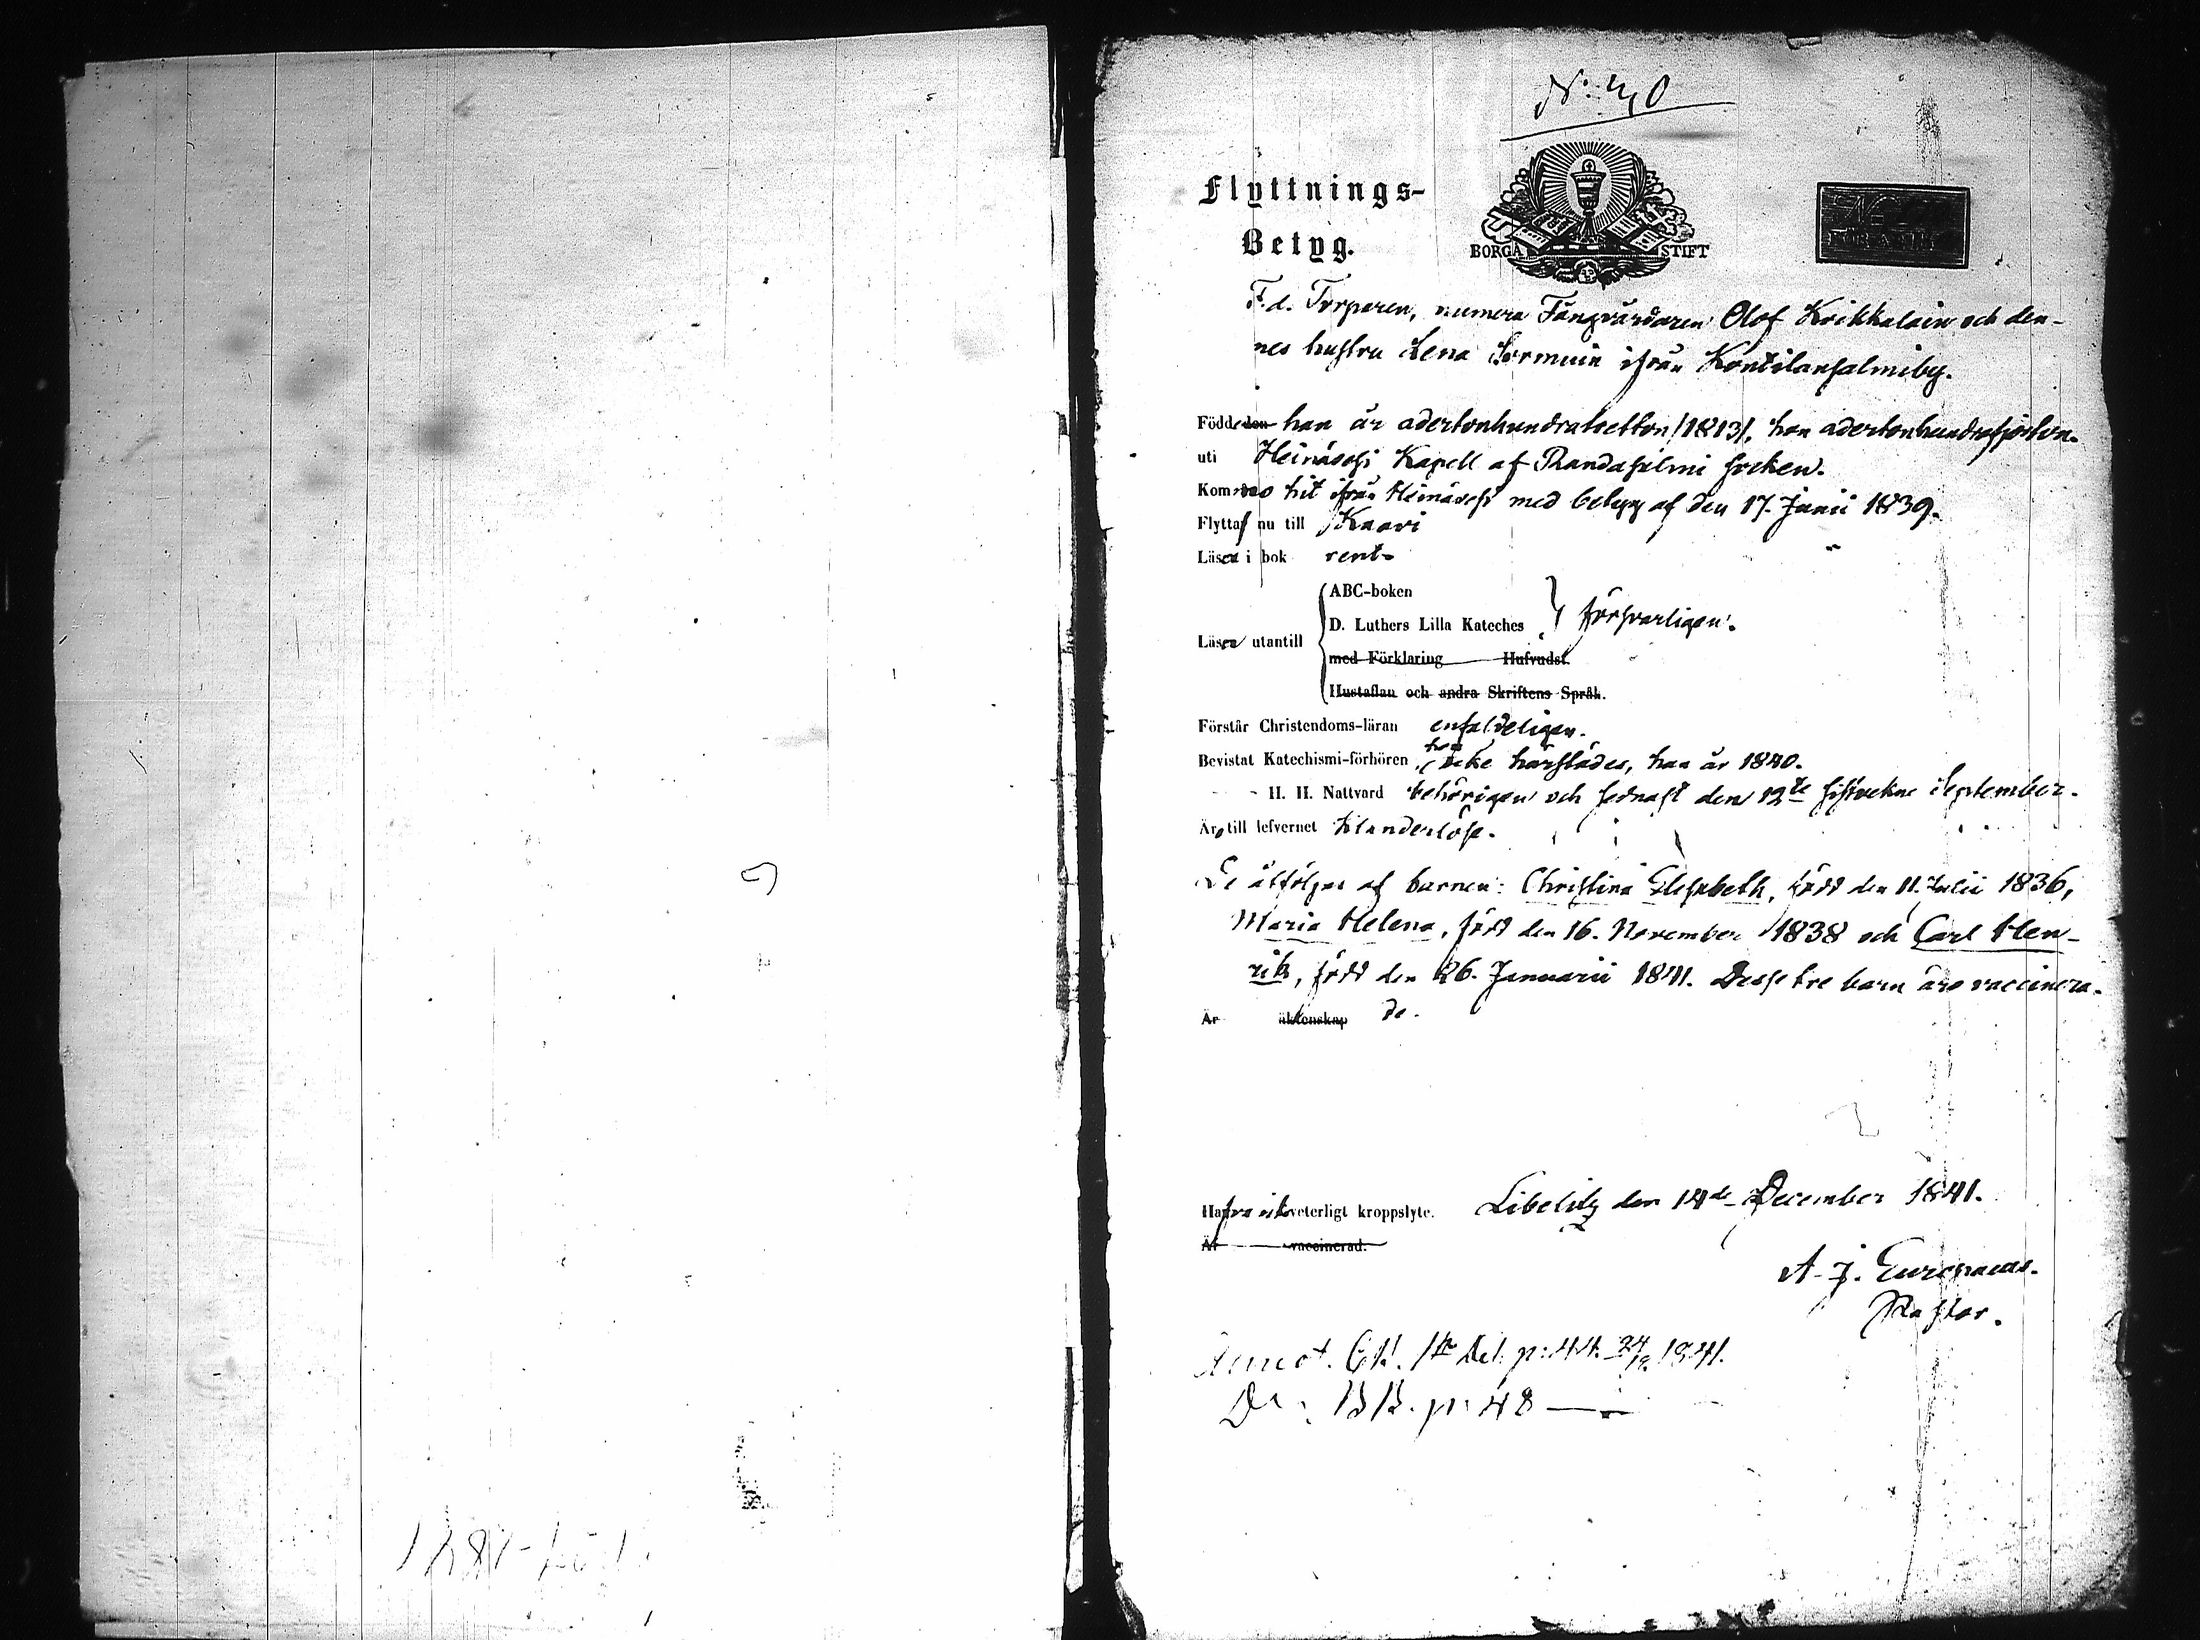 N:o 40
Flyttnings-
Betyg.
BORGÅ STIFT
F.d. Torparen, numera Fångvårdaren Olof Koikkalain och den-
nes hustru Lena Sormuin ifrån Kontilansalmiby.
Födde den han år adertonhundratretton /1813/, hon adertonhundrafjorton.
uti Heinävesi Kapell af Randasalmi socken.
Komne hit ifrån Heinävesi med betyg af den 17. Junii 1839.
Flyttas nu till Kaavi
Läsa i bok rent.
ABC-boken
D. Luthers Lilla Kateches } försvarligen.
Läsa utantill
med Förklaring Hufvudst.
Hustaflan och andra Skriftens Språk.
Förstår Christendoms-läran enfaldeligen.
Bevistat Katechismi-förhören hon icke härstädes, han år 1840.
H. H. Nattvard behörigen och sednast den 12te sistvekne September.
Äro till lefvernet klanderlöse.
De åtföljas af barnen: Christina Elisabeth, född den 11. Julii 1836,
Maria Helena, född den 16. November 1838 och Carl Hen-
rik, född den 26. Januarii 1841. Desse tre barn äro vaccinera-
Är äktenskap de.
Hafva icke veterligt kroppslyte. Libelitz den 14de December 1841.
Är vaccinerad.
A. J. Europaeus.
Pastor.
Annot. CB. 1sta Del. p: 44. 24/12 1841.
D:o BB. p: 48 —